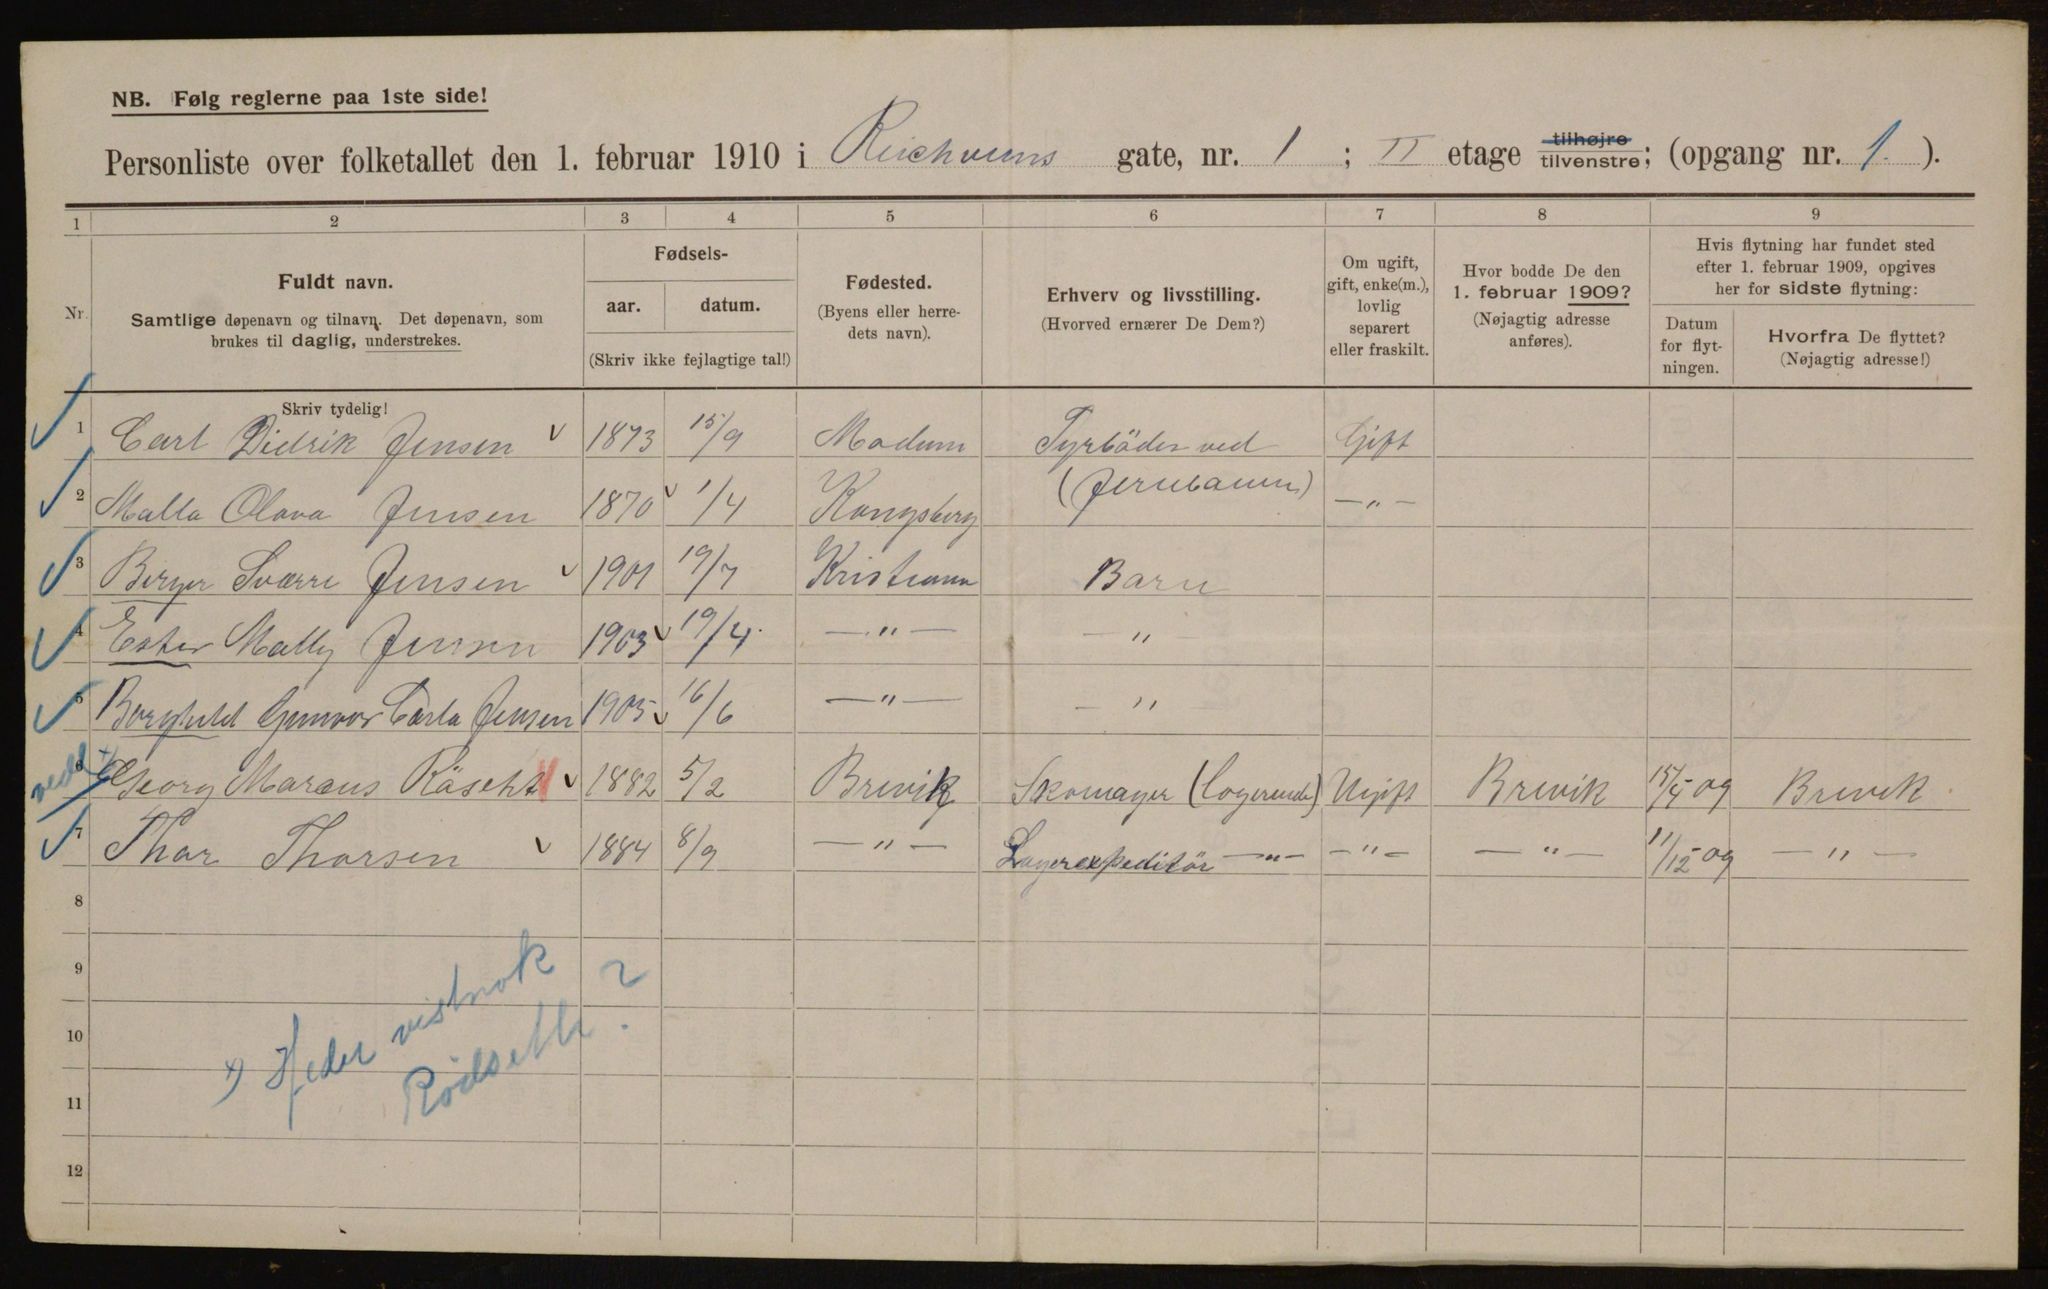 NB. Følg reglerne paa 1ste side!
Personliste over folketallet den 1. februar 1910 i Reichveins gate, nr. 1 ; II etage tilhøjre tilvenstre; (opgang nr. 1. ).
1 2 3 4 5 6 7 8 9
Nr.
Fuldt navn.
Samtlige døpenavn og tilnavn. Det døpenavn, som
brukes til daglig, understrekes.
Skriv tydelig!
Fødsels-
aar. datum.
(Skriv ikke fejlagtige tal!)
Fødested.
(Byens eller herre-
dets navn).
Erhverv og livsstilling.
(Hvorved ernærer De Dem?)
Om ugift,
gift, enke(m.),
lovlig
separert
eller fraskilt.
Hvor bodde De den
1. februar 1909?
(Nøjagtig adresse
anføres).
Hvis flytning har fundet sted
efter 1. februar 1909, opgives
her for sidste flytning:
Datum
for flyt-
ningen.
Hvorfra De flyttet?
(Nøjagtig adresse!)
1 Carl Didrik Jensen 1873 15/9 Modum Fyrböder ved Gift
(Jernbanen)
2 Malla Olava Jensen 1870 1/4 Kongsberg —"—
3 Berger Sværre Jensen 1901 19/7 Kristiania Barn
4 Ester Mally Jensen 1903 19/4. —"— —"
5 Borghild Gunvor Carla Jensen 1905 16/6 —"— —"
6 Georg Marcus Räseht 1882 5/2 Brevik Skomager (Logerende) Ugift Brevik 15/4-09 Brevik
7 Thor Thorsen 1884 8/9 —"— Lagerexpeditör —"— —"— —"— 11/12-09 —"—
8
9
10
11
12
x) Heder vistnok
Rödseth ?